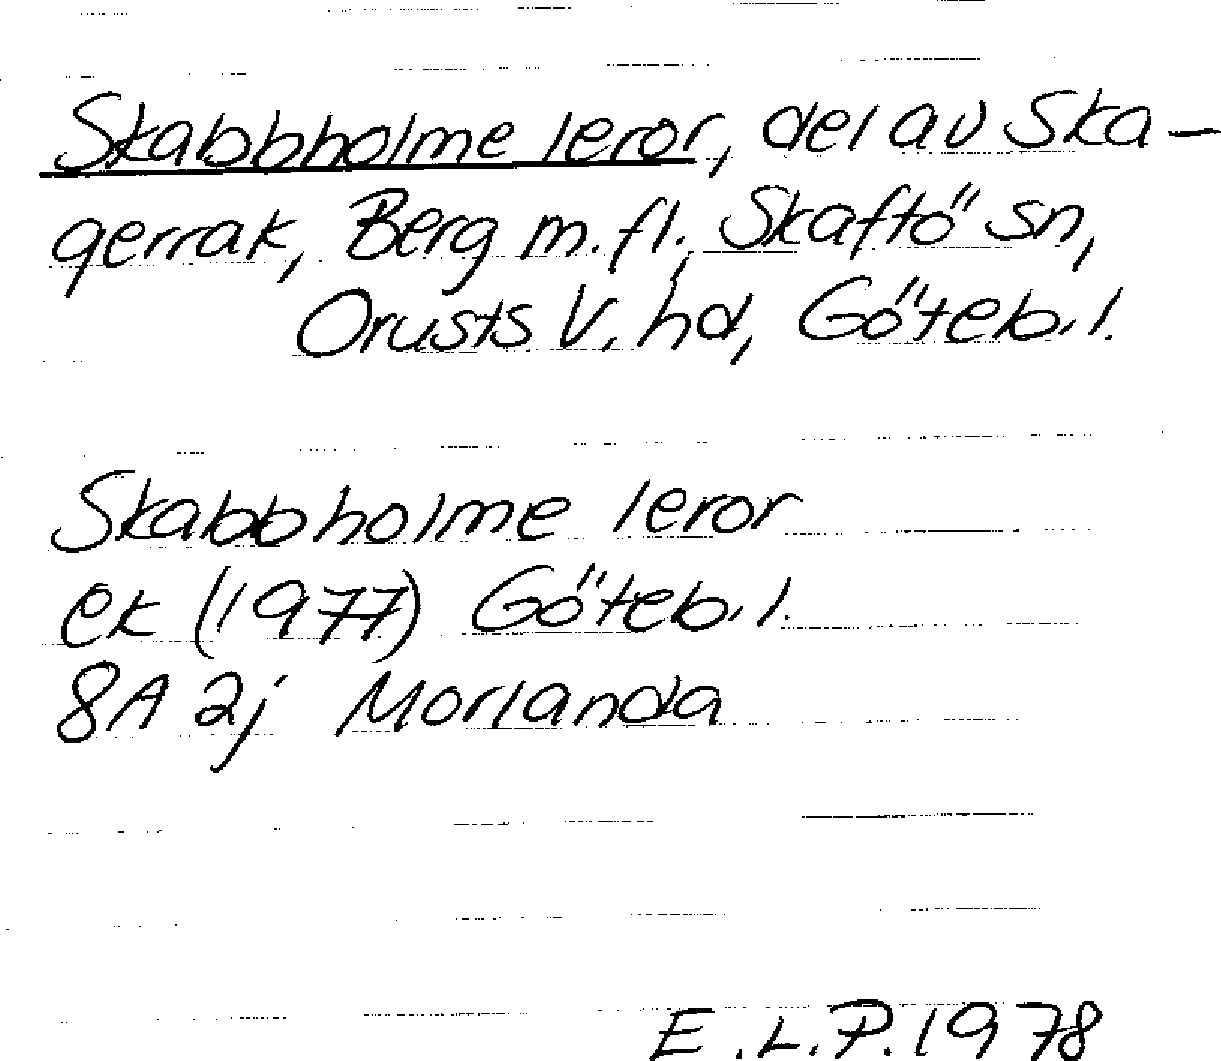 Skabbholme leror, del av Ska-
gerrak, Berg m.fl., Skaftö sn,
Orusts V. hd, Göteb. l.
Skabbholme leror
ek (1977) Göteb. l.
8A 2j Morlanda
E.L.P. 1978